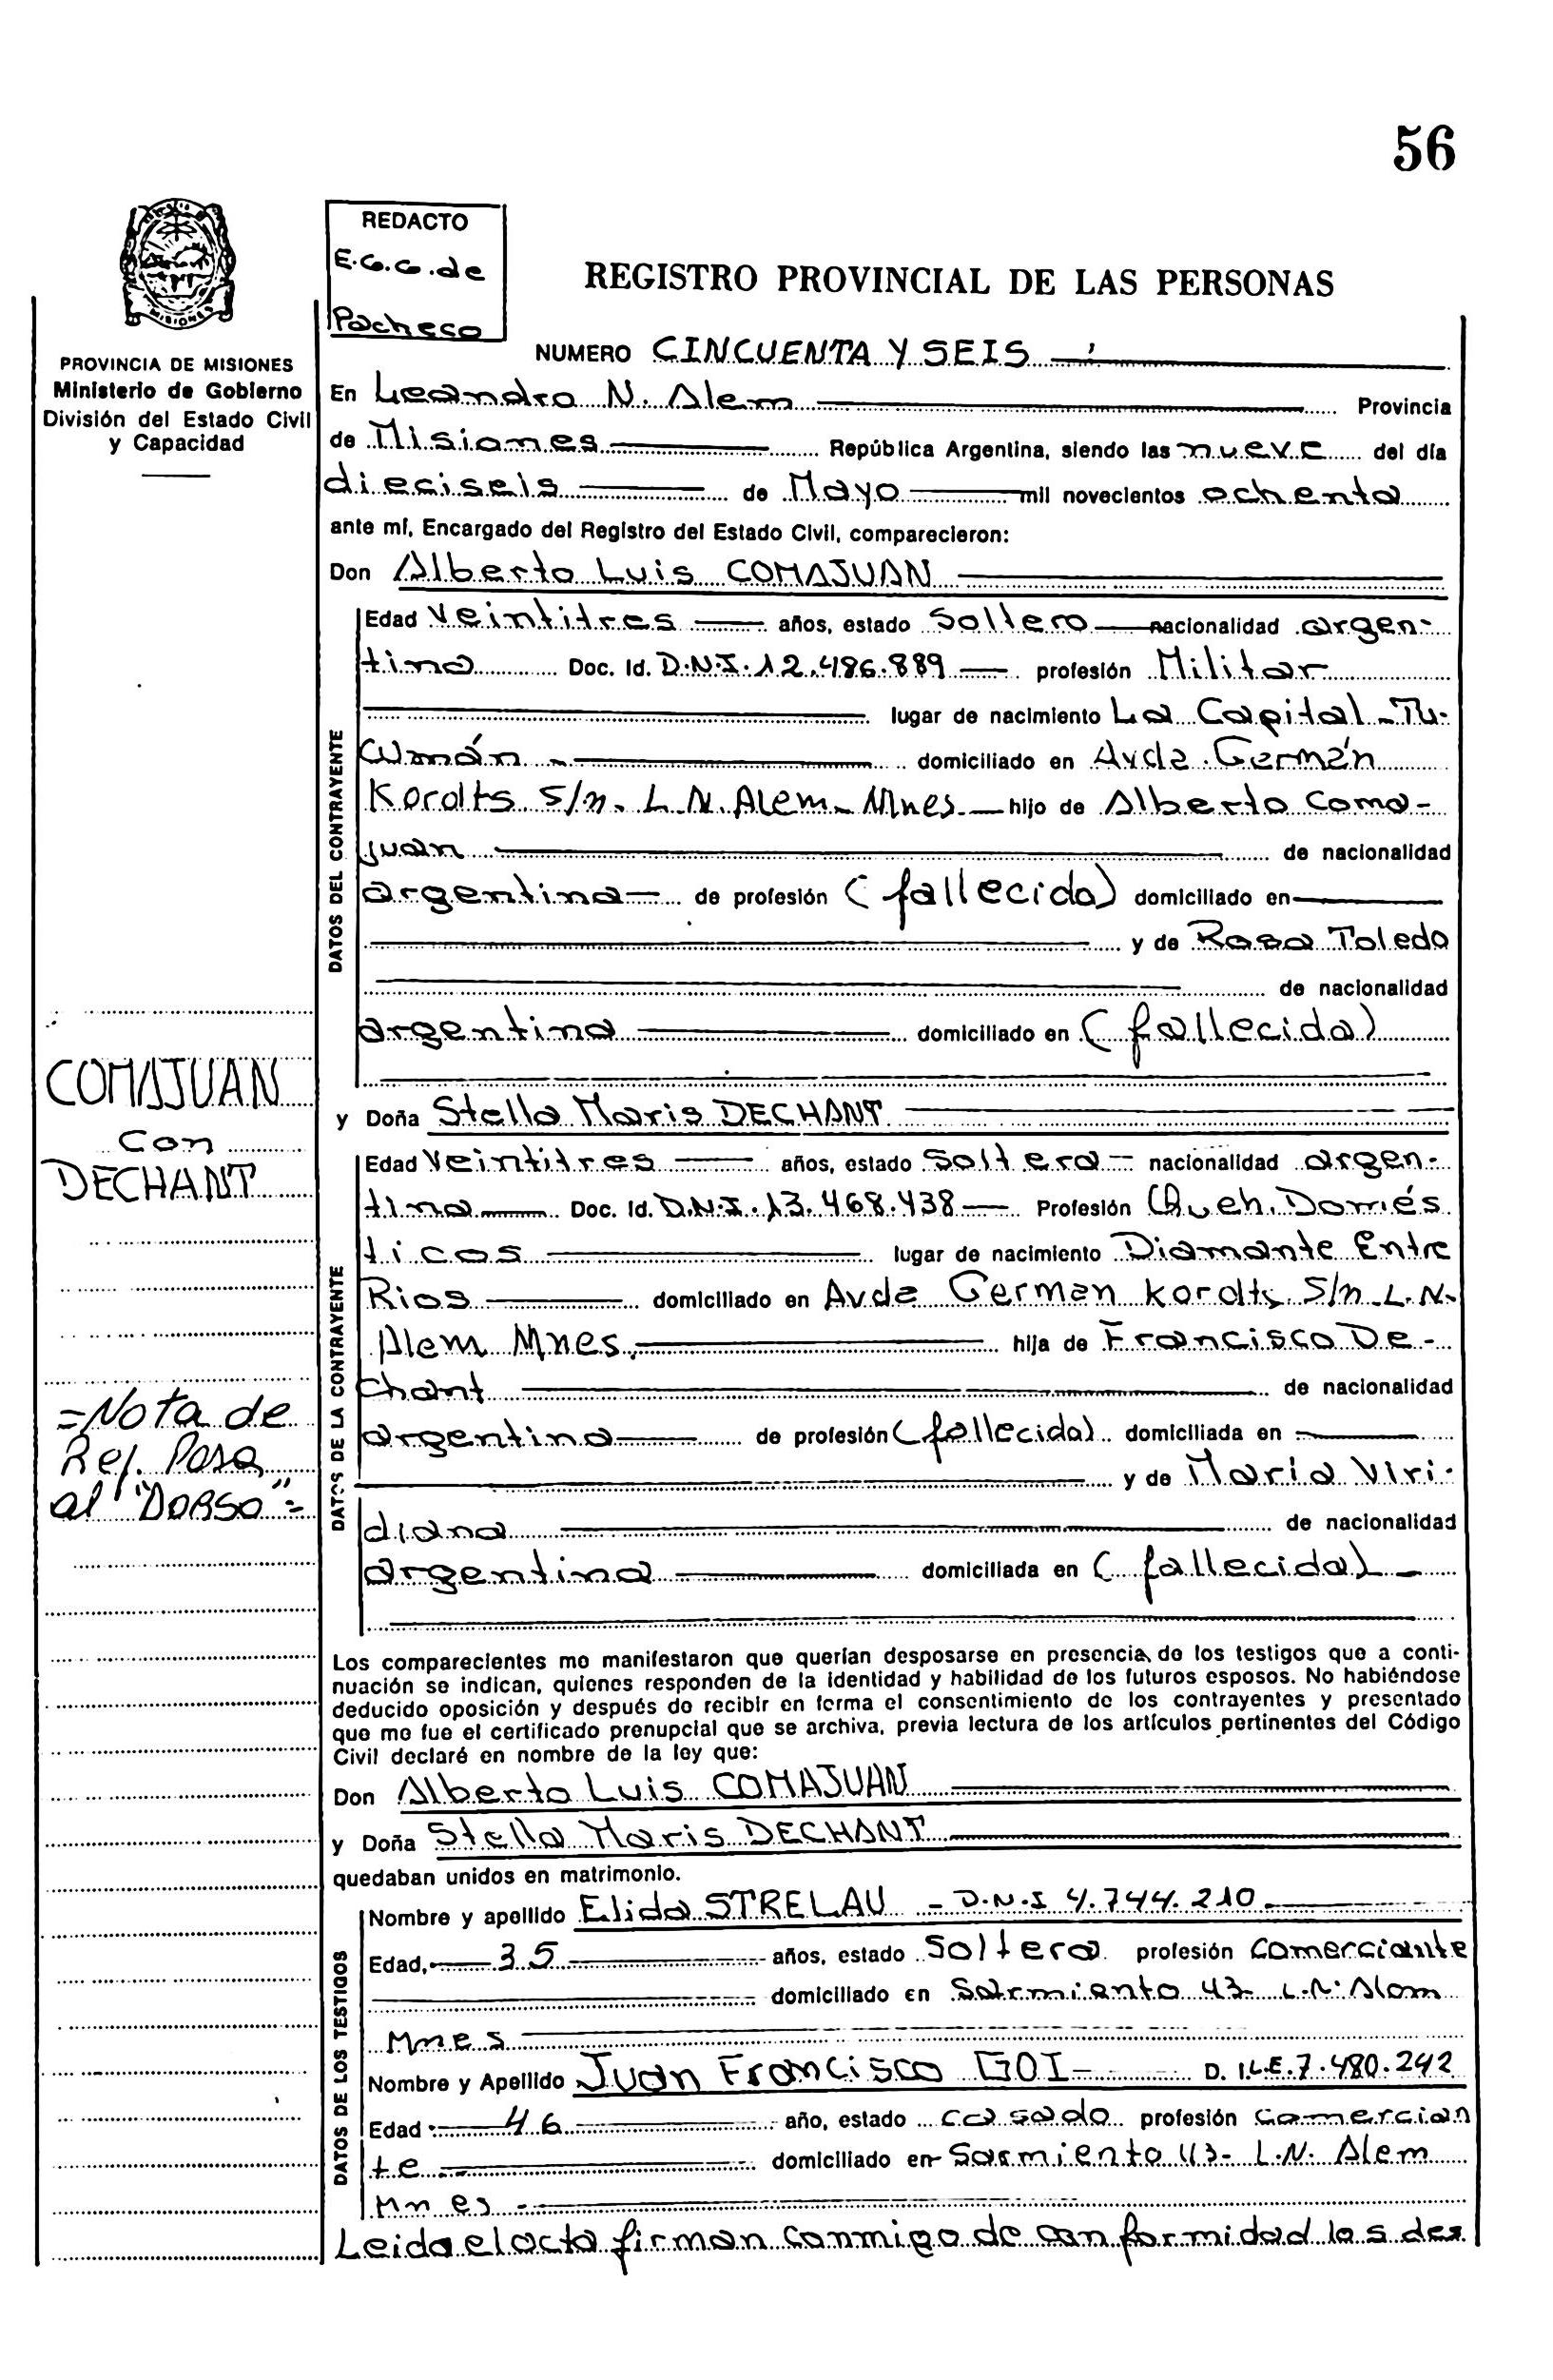 56
REDACTO
E.G.G. de
Pacheco
REGISTRO PROVINCIAL DE LAS PERSONAS
MISIONES
PROVINCIA DE MISIONES
Ministerio de Gobierno
División del Estado Civil
y Capacidad
NUMERO CINCUENTA Y SEIS
En Leandro N. Alem Provincia
de Misiones República Argentina, siendo las nueve del día
dieciseis de Mayo mil novecientos ochenta
ante mí, Encargado del Registro del Estado Civil, comparecieron:
Don Alberto Luis COMAJUAN
DATOS DEL CONTRAYENTE
Edad Veintitres años, estado Soltero nacionalidad argen-
tina Doc. Id. D.N.I. 12.486.889 profesión Militar
lugar de nacimiento La Capital - Tu-
cumán domiciliado en Avda. Germán
Kordts s/n. L.N. Alem - Mnes. hijo de Alberto Coma-
juan de nacionalidad
argentina de profesión (fallecido) domiciliado en
y de Rosa Toledo
de nacionalidad
argentina domiciliado en (fallecida)
y Doña Stella Maris DECHANT
DATOS DE LA CONTRAYENTE
Edad Veintitres años, estado Soltera nacionalidad argen-
tina Doc. Id. D.N.I. 13.468.438 Profesión Queh. Domés
ticos lugar de nacimiento Diamante Entre
Rios domiciliado en Avda German Kordts S/n. L.N.
Alem Mnes. hija de Francisco De-
chant de nacionalidad
argentina de profesión (fallecido) domiciliada en
y de María Viri-
diana de nacionalidad
argentina domiciliada en (fallecida)
COMAJUAN
con
DECHANT
=Nota de
Ref. Pasa
al "DORSO"=
Los comparecientes me manifestaron que querían desposarse en presencia de los testigos que a conti-
nuación se indican, quienes responden de la identidad y habilidad de los futuros esposos. No habiéndose
deducido oposición y después de recibir en forma el consentimiento de los contrayentes y presentado
que me fue el certificado prenupcial que se archiva, previa lectura de los artículos pertinentes del Código
Civil declaré en nombre de la ley que:
Don Alberto Luis COMAJUAN
y Doña Stella Maris DECHANT
quedaban unidos en matrimonio.
DATOS DE LOS TESTIGOS
Nombre y apellido Elida STRELAU - D.N.I 4.744.210
Edad, 35 años, estado Soltera profesión Comerciante
domiciliado en Sarmiento 43 L.N. Alem
Mnes
Nombre y Apellido Juan Francisco GOI D. I.L.E. 7.480.242
Edad 46 año, estado casado profesión comercian
te domiciliado en Sarmiento 43- L.N. Alem
Mnes
Leida el acta firman conmigo de conformidad los des